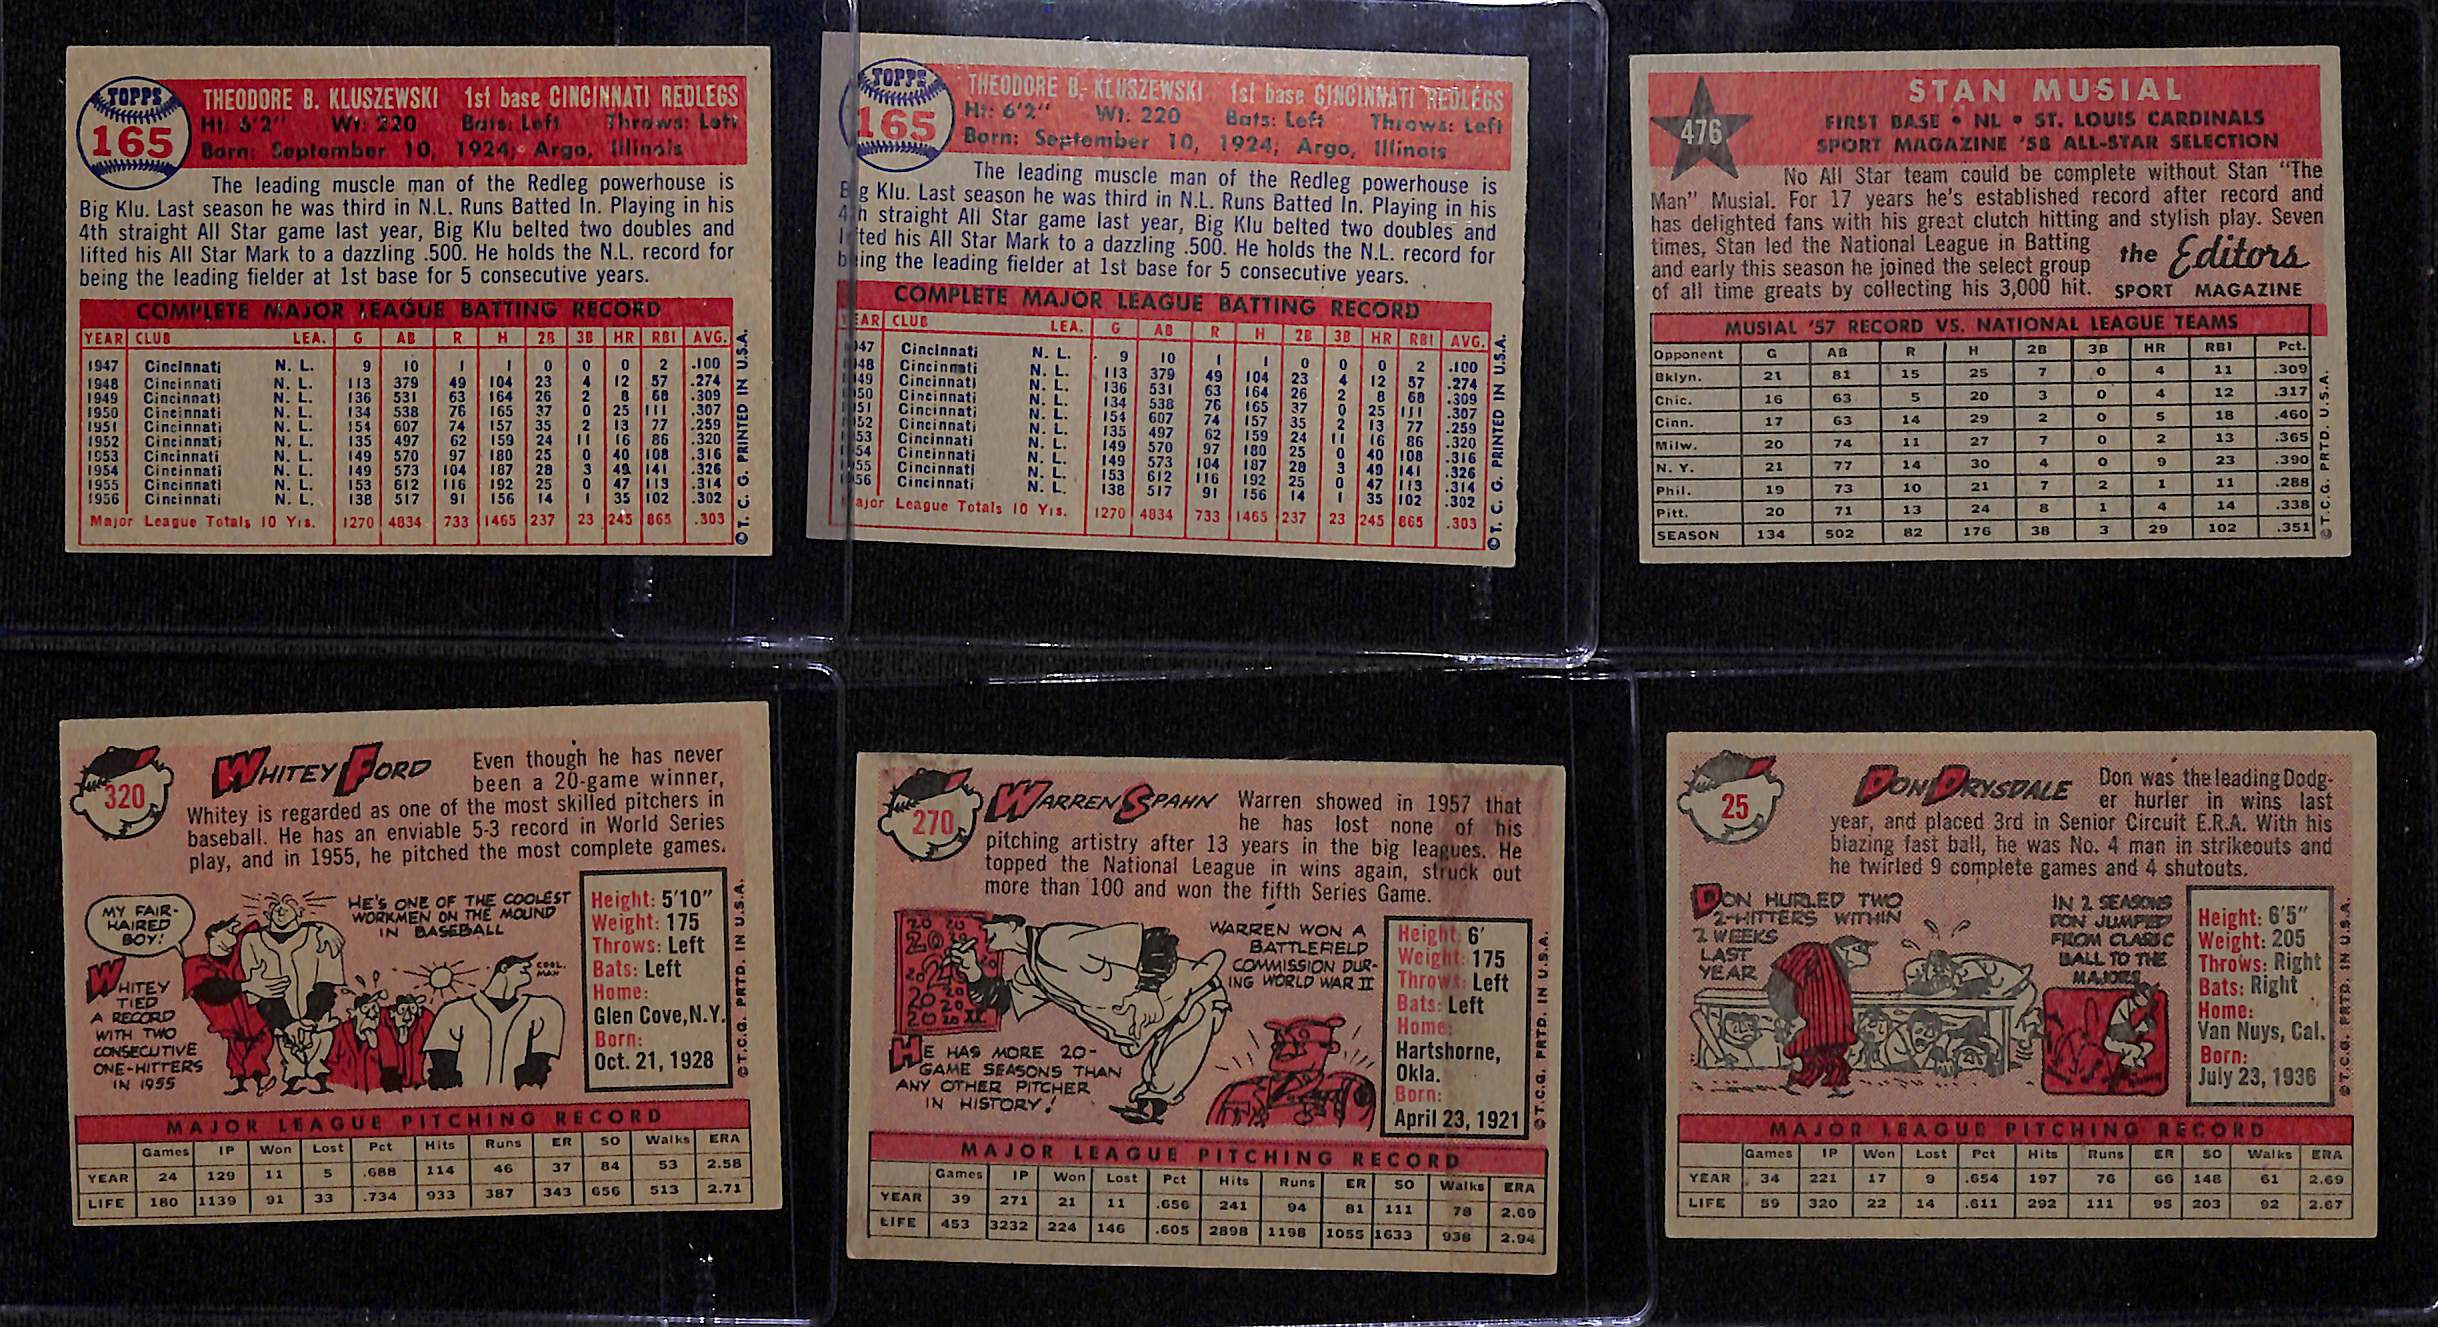 TOPPS
165
THEODORE B. KLUSZEWSKI 1st base CINCINNATI REDLEGS
Ht: 6'2" Wt: 220 Bats: Left Throws: Left
Born: September 10, 1924, Argo, Illinois
The leading muscle man of the Redleg powerhouse is
Big Klu. Last season he was third in N.L. Runs Batted In. Playing in his
4th straight All Star game last year, Big Klu belted two doubles and
lifted his All Star Mark to a dazzling .500. He holds the N.L. record for
being the leading fielder at 1st base for 5 consecutive years.
COMPLETE MAJOR LEAGUE BATTING RECORD
YEAR CLUB LEA. G AB R H 2B 3B HR RBI AVG.
1947 Cincinnati N. L. 9 10 1 1 0 0 0 2 .100
1948 Cincinnati N. L. 113 379 49 104 23 4 12 57 .274
1949 Cincinnati N. L. 136 531 63 164 26 2 8 68 .309
1950 Cincinnati N. L. 134 538 76 165 37 0 25 111 .307
1951 Cincinnati N. L. 154 607 74 157 35 2 13 77 .259
1952 Cincinnati N. L. 135 497 62 159 24 11 16 86 .320
1953 Cincinnati N. L. 149 570 97 180 25 0 40 108 .316
1954 Cincinnati N. L. 149 573 104 187 28 3 49 141 .326
1955 Cincinnati N. L. 153 612 116 192 25 0 47 113 .314
1956 Cincinnati N. L. 138 517 91 156 14 1 35 102 .302
Major League Totals 10 Yrs. 1270 4834 733 1465 237 23 245 865 .303
©T. C. G. PRINTED IN U.S.A.
TOPPS
165
THEODORE B. KLUSZEWSKI 1st base CINCINNATI REDLEGS
Ht: 6'2" Wt: 220 Bats: Left Throws: Left
Born: September 10, 1924, Argo, Illinois
The leading muscle man of the Redleg powerhouse is
Big Klu. Last season he was third in N.L. Runs Batted In. Playing in his
4th straight All Star game last year, Big Klu belted two doubles and
lifted his All Star Mark to a dazzling .500. He holds the N.L. record for
being the leading fielder at 1st base for 5 consecutive years.
COMPLETE MAJOR LEAGUE BATTING RECORD
YEAR CLUB LEA. G AB R H 2B 3B HR RBI AVG.
1947 Cincinnati N. L. 9 10 1 1 0 0 0 2 .100
1948 Cincinnati N. L. 113 379 49 104 23 4 12 57 .274
1949 Cincinnati N. L. 136 531 63 164 26 2 8 68 .309
1950 Cincinnati N. L. 134 538 76 165 37 0 25 111 .307
1951 Cincinnati N. L. 154 607 74 157 35 2 13 77 .259
1952 Cincinnati N. L. 135 497 62 159 24 11 16 86 .320
1953 Cincinnati N. L. 149 570 97 180 25 0 40 108 .316
1954 Cincinnati N. L. 149 573 104 187 28 3 49 141 .326
1955 Cincinnati N. L. 153 612 116 192 25 0 47 113 .314
1956 Cincinnati N. L. 138 517 91 156 14 1 35 102 .302
Major League Totals 10 Yrs. 1270 4834 733 1465 237 23 245 865 .303
©T. C. G. PRINTED IN U.S.A.
476
STAN MUSIAL
FIRST BASE • NL • ST. LOUIS CARDINALS
SPORT MAGAZINE '58 ALL-STAR SELECTION
No All Star team could be complete without Stan "The
Man" Musial. For 17 years he's established record after record and
has delighted fans with his great clutch hitting and stylish play. Seven
times, Stan led the National League in Batting
and early this season he joined the select group
of all time greats by collecting his 3,000 hit.
the Editors
SPORT MAGAZINE
MUSIAL '57 RECORD VS. NATIONAL LEAGUE TEAMS
Opponent G AB R H 2B 3B HR RBI Pct.
Bklyn. 21 81 15 25 7 0 4 11 .309
Chic. 16 63 5 20 3 0 4 12 .317
Cinn. 17 63 14 29 2 0 5 18 .460
Milw. 20 74 11 27 7 0 2 13 .365
N. Y. 21 77 14 30 4 0 9 23 .390
Phil. 19 73 10 21 7 2 1 11 .288
Pitt. 20 71 13 24 8 1 4 14 .338
SEASON 134 502 82 176 38 3 29 102 .351
©T.C.G. PRTD. U.S.A.
320
WHITEY FORD
Even though he has never
been a 20-game winner,
Whitey is regarded as one of the most skilled pitchers in
baseball. He has an enviable 5-3 record in World Series
play, and in 1955, he pitched the most complete games.
MY FAIR-
HAIRED
BOY!
HE'S ONE OF THE COOLEST
WORKMEN ON THE MOUND
IN BASEBALL
COOL,
MAN
WHITEY
TIED
A RECORD
WITH TWO
CONSECUTIVE
ONE-HITTERS
IN 1955
Height: 5'10"
Weight: 175
Throws: Left
Bats: Left
Home:
Glen Cove, N.Y.
Born:
Oct. 21, 1928
©T.C.G. PRTD. IN U.S.A.
MAJOR LEAGUE PITCHING RECORD
Games IP Won Lost Pct Hits Runs ER SO Walks ERA
YEAR 24 129 11 5 .688 114 46 37 84 53 2.58
LIFE 180 1139 91 33 .734 933 387 343 656 513 2.71
270
WARREN SPAHN
Warren showed in 1957 that
he has lost none of his
pitching artistry after 13 years in the big leagues. He
topped the National League in wins again, struck out
more than 100 and won the fifth Series Game.
20 20
20 20
20 20
20 20
20 20
WARREN WON A
BATTLEFIELD
COMMISSION DUR-
ING WORLD WAR II
HE HAS MORE 20-
GAME SEASONS THAN
ANY OTHER PITCHER
IN HISTORY!
Height: 6'
Weight: 175
Throws: Left
Bats: Left
Home:
Hartshorne,
Okla.
Born:
April 23, 1921
©T.C.G. PRTD. IN U.S.A.
MAJOR LEAGUE PITCHING RECORD
Games IP Won Lost Pct Hits Runs ER SO Walks ERA
YEAR 39 271 21 11 .656 241 94 81 111 78 2.69
LIFE 453 3232 224 146 .605 2898 1198 1055 1633 938 2.94
25
DON DRYSDALE
Don was the leading Dodg-
er hurler in wins last
year, and placed 3rd in Senior Circuit E.R.A. With his
blazing fast ball, he was No. 4 man in strikeouts and
he twirled 9 complete games and 4 shutouts.
DON HURLED TWO
2-HITTERS WITHIN
2 WEEKS
LAST
YEAR
IN 2 SEASONS
DON JUMPED
FROM CLASS C
BALL TO THE
MAJORS
Height: 6'5"
Weight: 205
Throws: Right
Bats: Right
Home:
Van Nuys, Cal.
Born:
July 23, 1936
©T.C.G. PRTD. IN U.S.A.
MAJOR LEAGUE PITCHING RECORD
Games IP Won Lost Pct Hits Runs ER SO Walks ERA
YEAR 34 221 17 9 .654 197 76 66 148 61 2.69
LIFE 59 320 22 14 .611 292 111 95 203 92 2.67